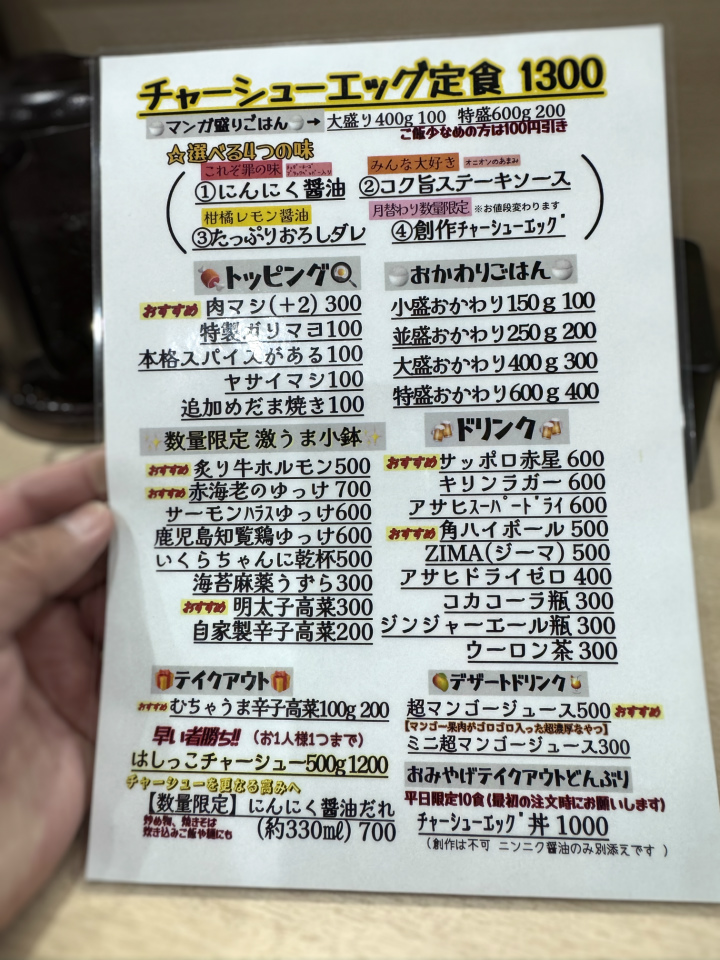 チャーシューエッグ定食 1300
マンガ盛りごはん → 大盛り400g 100 特盛600g 200
ご飯少なめの方は100円引き
☆選べる4つの味
これぞ罪の味
①にんにく醤油
みんな大好き オニオンのあまみ
②コク旨ステーキソース
柑橘レモン醤油
③たっぷりおろしダレ
月替わり数量限定 ※お値段変わります
④創作チャーシューエッグ
トッピング
おすすめ 肉マシ(+2) 300
特製ガリマヨ100
本格スパイスがある100
ヤサイマシ100
追加めだま焼き100
おかわりごはん
小盛おかわり150g 100
並盛おかわり250g 200
大盛おかわり400g 300
特盛おかわり600g 400
数量限定 激うま小鉢
おすすめ 炙り牛ホルモン500
おすすめ 赤海老のゆっけ 700
サーモンハラスゆっけ600
鹿児島知覧鶏ゆっけ600
いくらちゃんに乾杯500
海苔麻薬うずら300
おすすめ 明太子高菜300
自家製辛子高菜200
ドリンク
おすすめ サッポロ赤星 600
キリンラガー 600
アサヒスーパードライ 600
おすすめ 角ハイボール 500
ZIMA(ジーマ) 500
アサヒドライゼロ 400
コカコーラ瓶 300
ジンジャーエール瓶 300
ウーロン茶 300
テイクアウト
おすすめ むちゃうま辛子高菜100g 200
早い者勝ち!! (お1人様1つまで)
はしっこチャーシュー500g1200
チャーシューを更なる高みへ
【数量限定】にんにく醤油だれ
炒め物、焼きそば
炊き込みご飯や麺にも
(約330ml) 700
デザートドリンク
超マンゴージュース500 おすすめ
【マンゴー果肉がゴロゴロ入った超濃厚なやつ】
ミニ超マンゴージュース300
おみやげテイクアウトどんぶり
平日限定10食(最初の注文時にお願いします)
チャーシューエッグ丼 1000
(創作は不可 ニンニク醤油のみ別添えです )